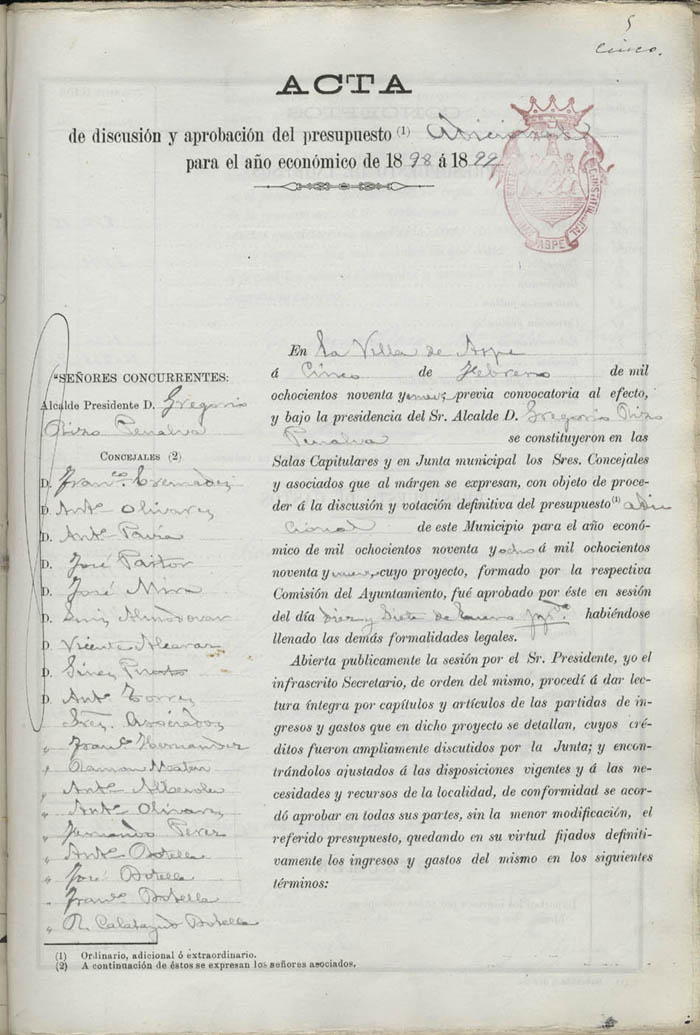 5
Cinco.
ACTA
de discusión y aprobación del presupuesto (1) Adicional
para el año económico de 1898 á 1899
CONSTITUCIONAL
ASPE
SEÑORES CONCURRENTES:
Alcalde Presidente D. Gregorio
Rizo Penalva
CONCEJALES (2)
D. Franco. Cremades
D. Anto. Olivares
D. Anto. Pavia
D. José Pastor
D. José Mira
D. Luis Almodovar
D. Vicente Alcaraz
D. Gines
D. Anto. Torres
Sres. Asociados
" Franco. Hernandez
" Ramon
" Anto. Alberola
" Anto. Olivares
" Fernando Perez
" Anto. Botella
" José Botella
" Franco. Botella
" R. Calatayud Botella
En la Villa de Aspe
á Cinco de Febrero de mil
ochocientos noventa y nueve, previa convocatoria al efecto,
y bajo la presidencia del Sr. Alcalde D. Gregorio Rizo
Penalva se constituyeron en las
Salas Capitulares y en Junta municipal los Sres. Concejales
y asociados que al márgen se expresan, con objeto de proce-
der á la discusión y votación definitiva del presupuesto (1) adi
cional de este Municipio para el año econó-
mico de mil ochocientos noventa y ocho á mil ochocientos
noventa y nueve, cuyo proyecto, formado por la respectiva
Comisión del Ayuntamiento, fué aprobado por éste en sesión
del día diez y siete de Enero habiéndose
llenado las demás formalidades legales.
Abierta publicamente la sesión por el Sr. Presidente, yo el
infrascrito Secretario, de orden del mismo, procedí á dar lec-
tura íntegra por capítulos y artículos de las partidas de in-
gresos y gastos que en dicho proyecto se detallan, cuyos cré-
ditos fueron ampliamente discutidos por la Junta; y encon-
trándolos ajustados á las disposiciones vigentes y á las ne-
cesidades y recursos de la localidad, de conformidad se acor-
dó aprobar en todas sus partes, sin la menor modificación, el
referido presupuesto, quedando en su virtud fijados definiti-
vamente los ingresos y gastos del mismo en los siguientes
términos:
(1) Ordinario, adicional ó extraordinario.
(2) A continuación de éstos se expresan los señores asociados.